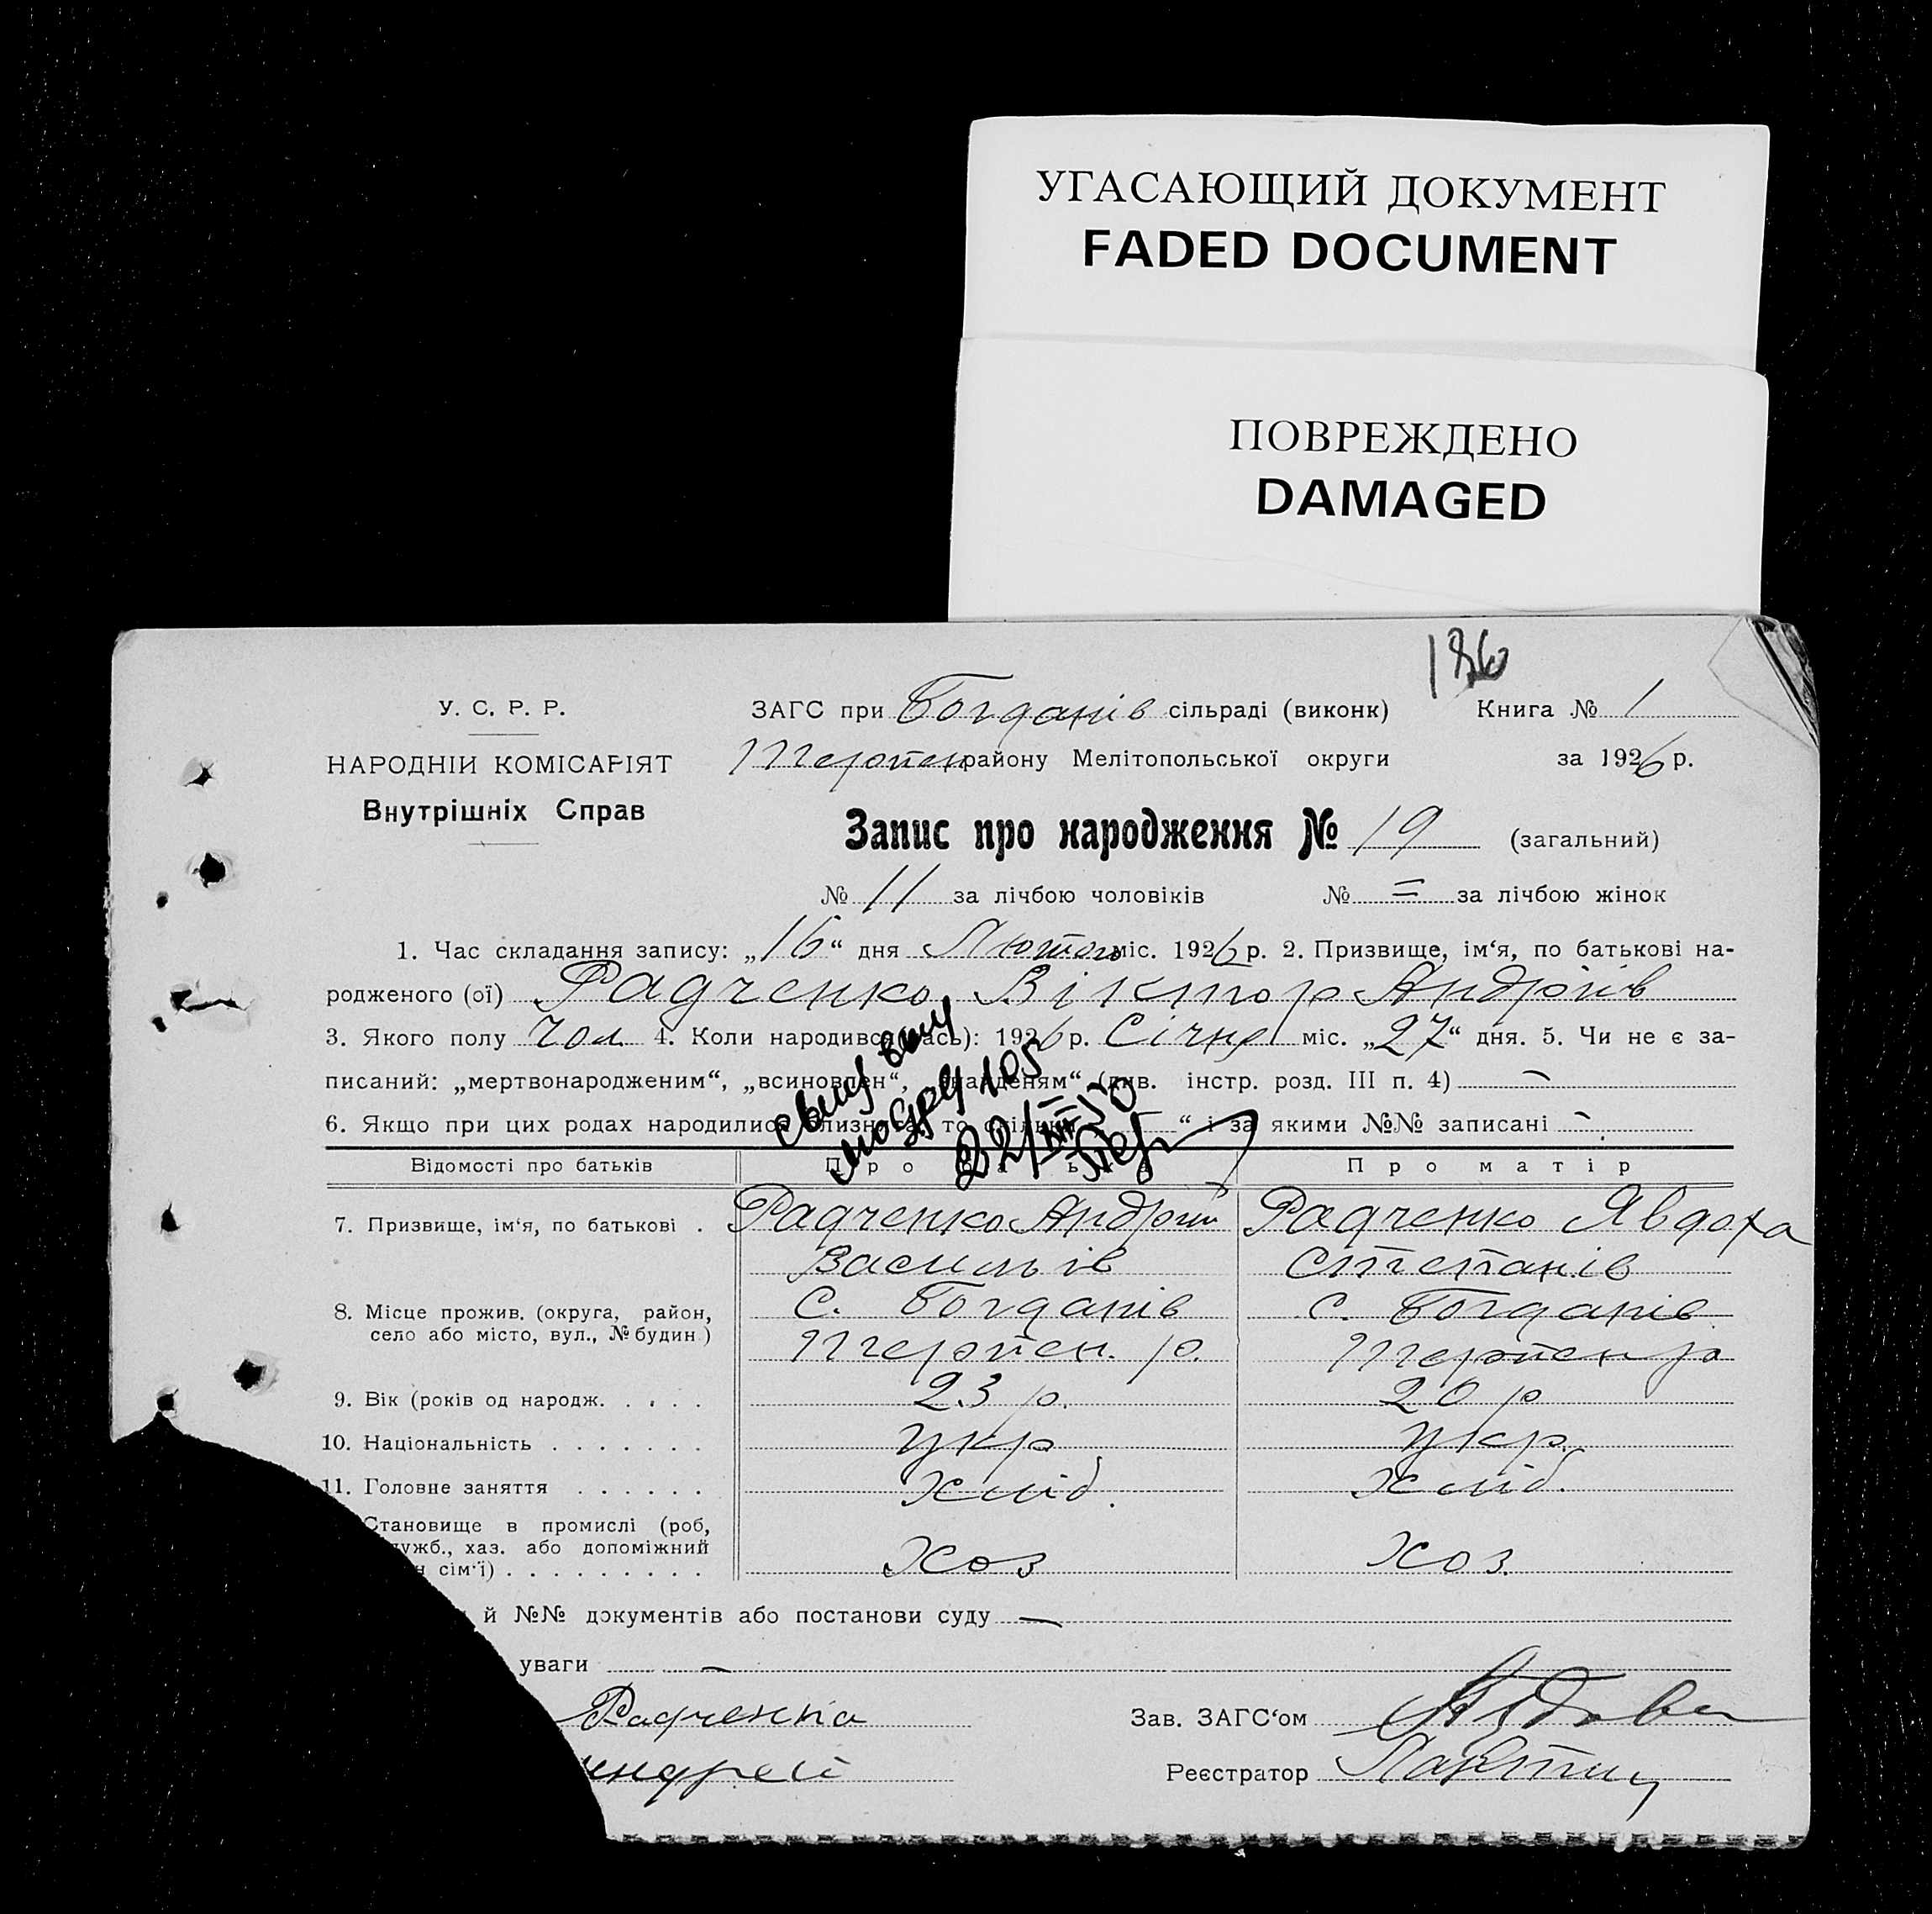 УГАСАЮЩИЙ ДОКУМЕНТ
FADED DOCUMENT
ПОВРЕЖДЕНО
DAMAGED
136
У. С. Р. Р.
НАРОДНІЙ КОМІСАРІЯТ
Внутрішніх Справ
ЗАГС при Богданів сільраді (виконк) Книга № 1
Терпен району Мелітопольської округи за 1926 р.
Запис про народження № 19 (загальний)
№ 11 за лічбою чоловіків № = за лічбою жінок
1. Час складання запису: „16“ дня Лютого міс. 1926 р. 2. Призвище, ім‘я, по батькові на-
родженого (ої) Радченко Віктор Андріїв
3. Якого полу чол. 4. Коли народився (лась): 1926 р. Січня міс. „27“ дня. 5. Чи не є за-
писаний: „мертвонародженим“, „всиновлен“, „знайденям“ (див. інстр. розд. III п. 4) —
6. Якщо при цих родах народилися близнята, то скільки “ і за якими №№ записані -
Відомості про батьків Про батька Про матір
7. Призвище, ім‘я, по батькові . Радченко Андрій Радченко Явдоха
Васильів Степанів
8. Місце прожив. (округа, район, с. Богданів с. Богданів
село або місто, вул., № будин.) Терпен. р. Терпен р
9. Вік (років од народж. . . . . 23 р. 20 р
10. Національність . . . . . . . укр укр.
11. Головне заняття . . . . . . хлід. хлід.
Становище в промислі (роб,
служб., хаз. або допоміжний хоз хоз.
сім‘ї) . . . . . . . . .
й №№ документів або постанови суду —
уваги —
Радченко Зав. ЗАГС‘ом
Андрей Реєстратор